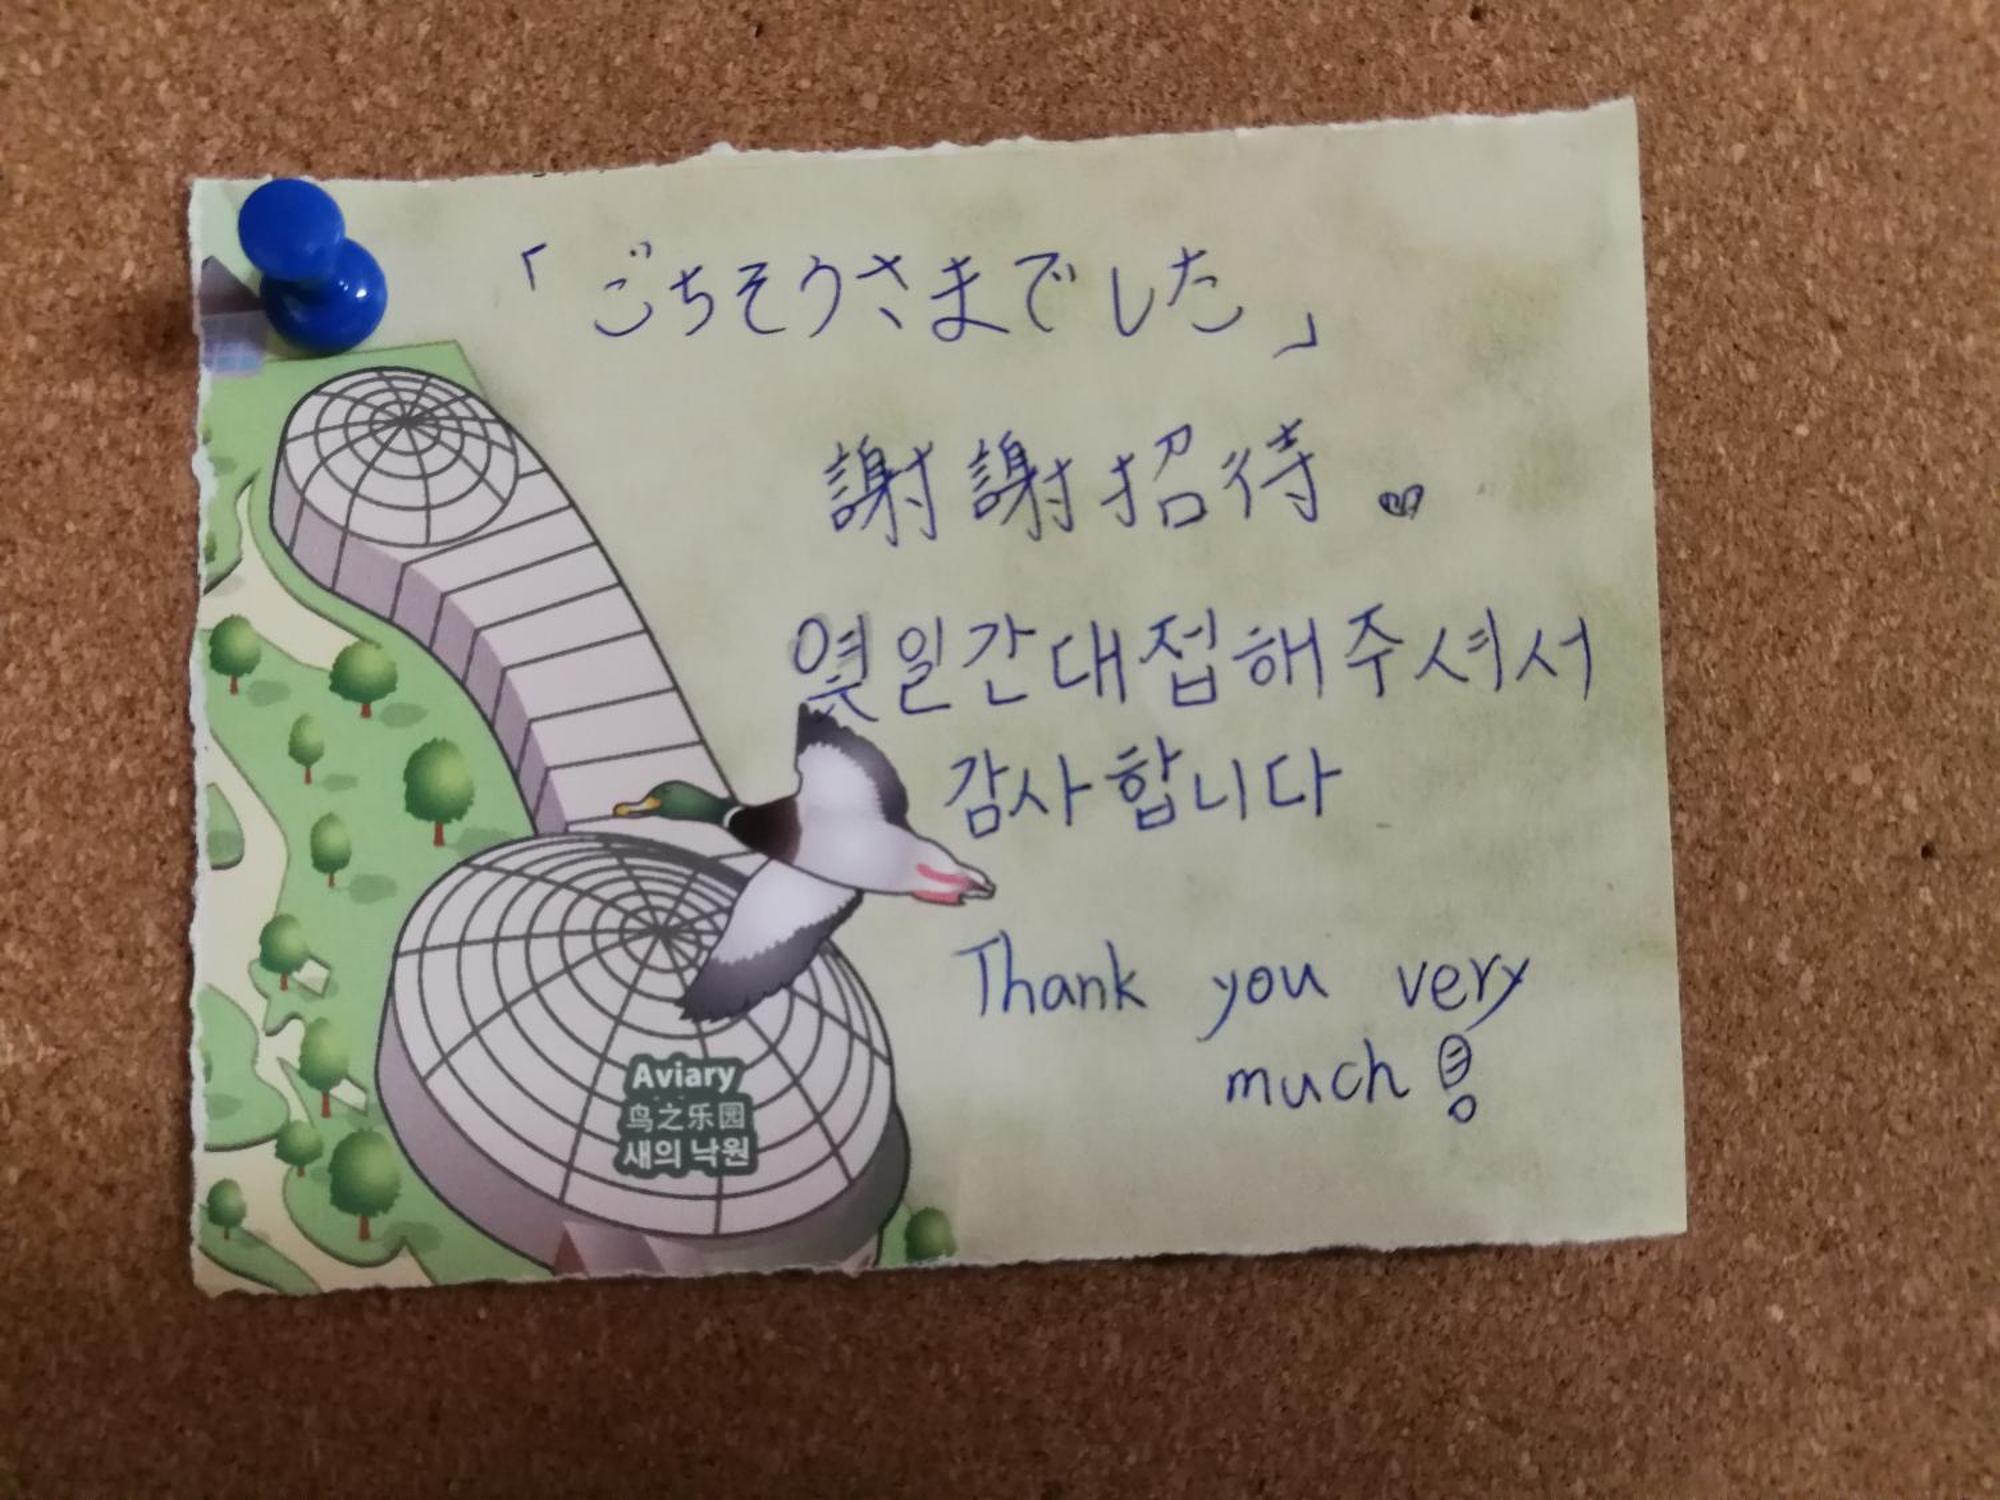 「ごちそうさまでした」
謝謝招待
옃일간대접해주셔서
감사합니다
Thank you very
much!
Aviary
鸟之乐园
새의 낙원